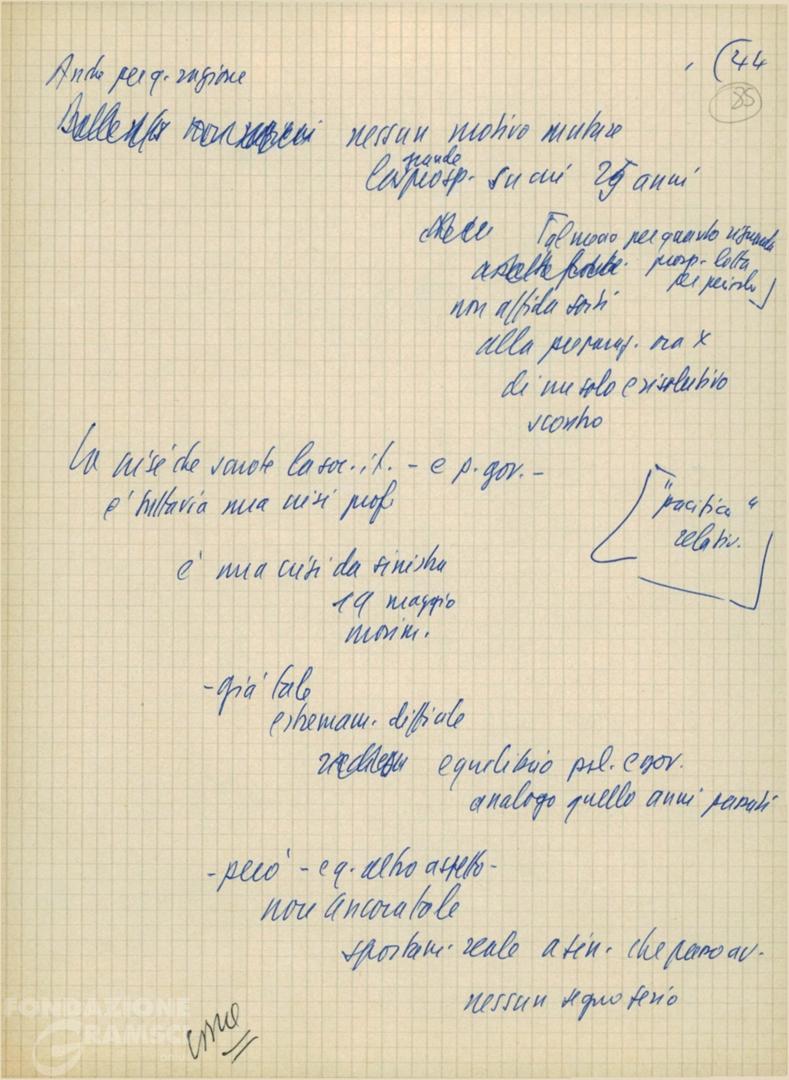 (44
85
Anche per q. ragione
nessun motivo mutare
grande
prosp. su cui 25 anni
[almeno per quanto riguarda
prosp. lotta
non affida sorti
alla preparaz. ora x
di un solo e risolutivo
scontro
La crisi che scuote la soc. it. - e p. gov. -
è tuttavia una crisi prof.
"pacifica"
relativ.
è una crisi da sinistra
19 maggio
movim.
- già tale
estremam. difficile
equilibrio pol. e gov.
analogo quello anni passati
- però - e q. altro aspetto -
non ancora tale
spostam. reale a sin. che paese av.
nessun segno serio
FONDAZIONE
GRAMSCI